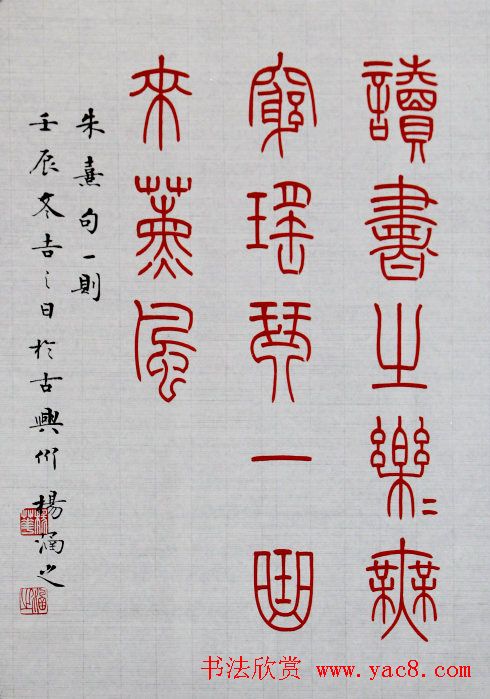 讀書之樂〻無
窮瑤琴一曲
來薰風
朱熹句一則
壬辰冬吉之日於古興州 楊涵之
书法欣赏 www.yac8.com